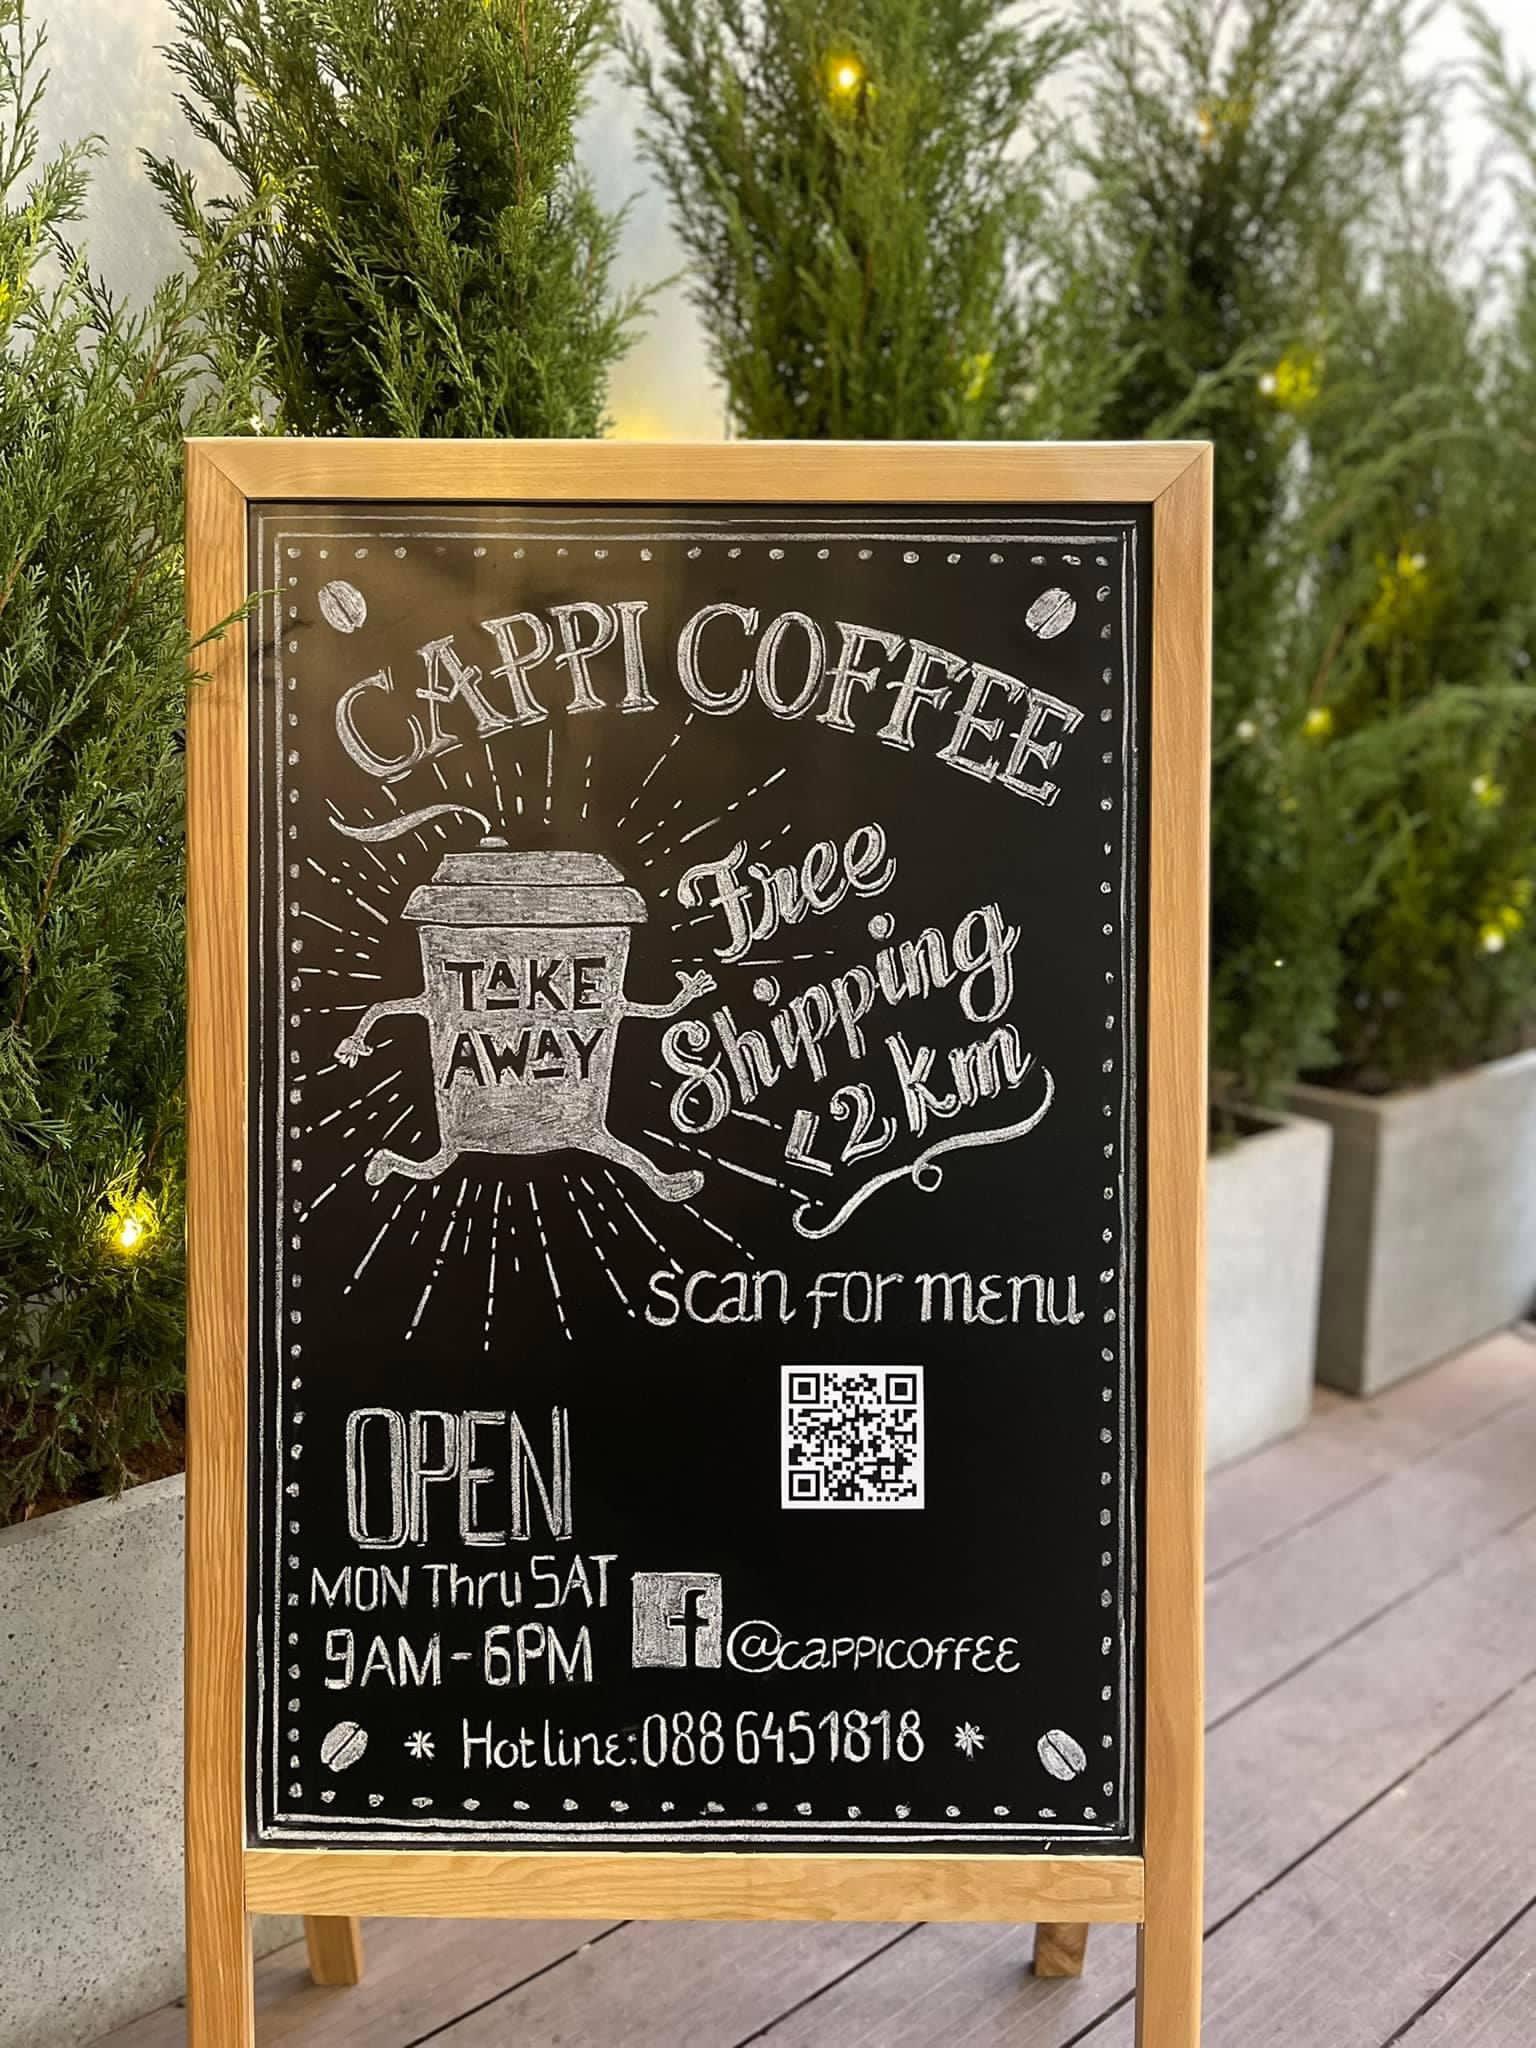 CAPPI COFFEE
TAKE
AWAY
Free
Shipping
<2 km
scan for menu
OPEN
MON Thru SAT
9AM - 6PM
f @cappicoffee
* Hotline: 088 6451818 *